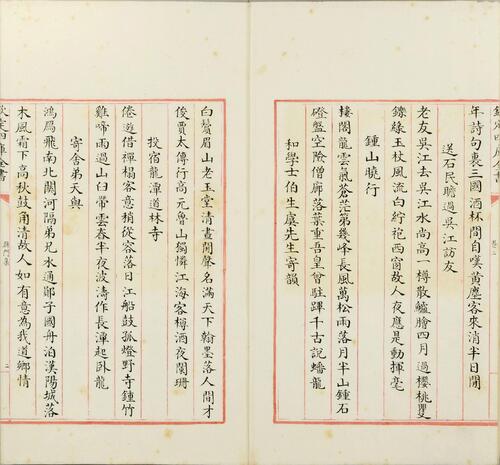 欽定四庫全書
卷二
年詩句裏三國酒杯間自嘆黃塵客來消半日閒
送石民瞻過吳江訪友
老友吳江去吳江水尚高一樽散鱸膾四月過櫻桃矍
鑠綠玉杖風流白紵袍西窗故人夜應是動揮毫
鍾山曉行
樓閣龍雲氣蒼茫第幾峰長風萬松雨落月半山鍾石
磴盤空險僧廊落葉重吾皇曾駐蹕千古說蟠龍
和學士伯生虞先生寄韻
白鬚眉山老玉堂清晝閒聲名滿天下翰墨落人間才
俊賈太傅行高元魯山獨憐江海客樽酒夜闌珊
投宿龍潭道林寺
倦遊借禪榻客意稍從容落日江船鼓孤燈野寺鍾竹
雞啼雨過山臼帶雲舂半夜波濤作長潭起臥龍
寄舍弟天與
鴻鴈飛南北關河隔弟兄水通鄖子國舟泊漢陽城落
木風霜下高秋鼓角清故人如有意為我道鄉情
欽定四庫全書
鴈門集
二